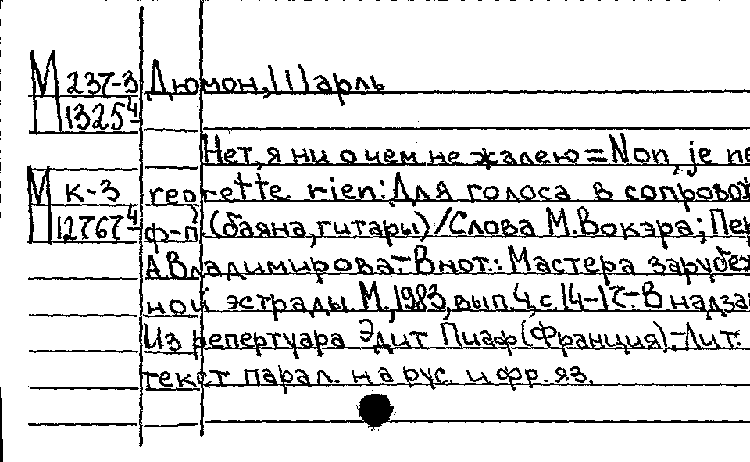 М 237-3 Дюмон, Шарль
П 1325⁴
Нет, я ни о чем не жалею = Non, je ne
М к-3 regrette rien: Для голоса в сопровож
П 2767⁴ ф-п (баяна, гитары)/Слова М. Вокэра; Пер
А. Владимирова.- В нот.: Мастера зарубеж
ной эстрады М., 1983, вып. 4, с. 14-17.- В надзаг
Из репертуара Эдит Пиаф (Франция).- Лит.
текст парал. на рус. и фр. яз.